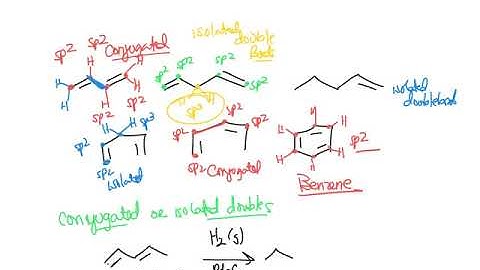 isolated
double
sp2 sp2 Conjugated
sp2 sp2
H H H
H H H
sp2 sp2
sp2 sp2
H
sp3
isolated
doublebond
H H sp3
sp2
sp2
isolated
sp2 sp2
sp2
sp2
Conjugated
H
H H
H H
H
sp2
Benzene
Conjugated or isolated doubles
H2(g)